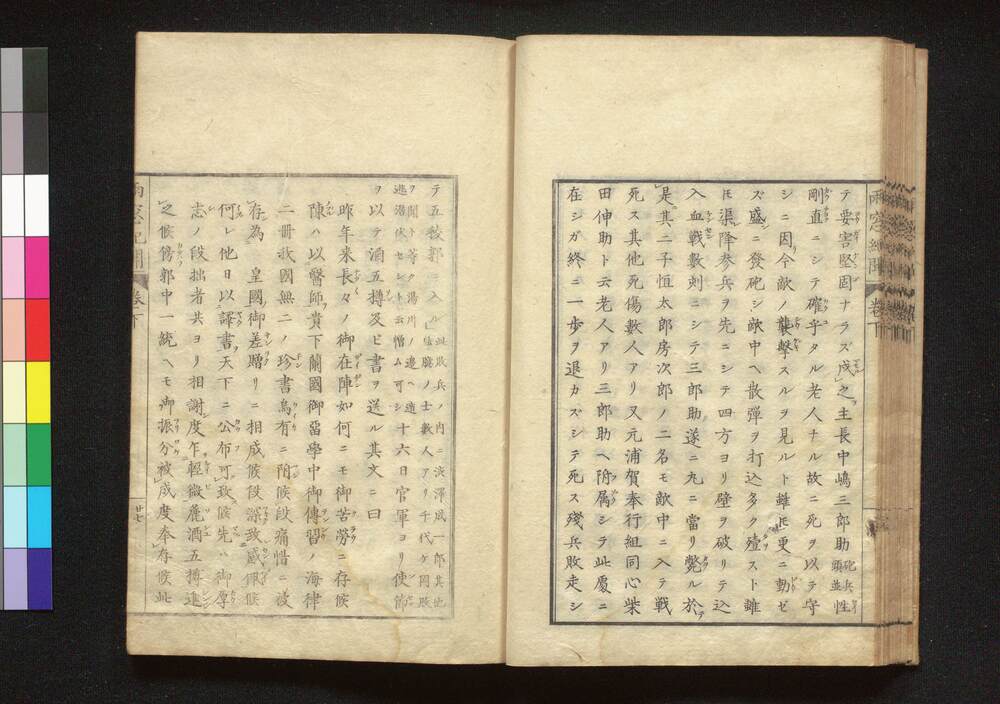 雨窓紀聞 巻下
テ要害堅固ナラズ戍之主長中嶋三郎助砲兵頭並性
剛直ニシテ確乎タル老人ナル故ニ死ヲ以テ守
シニ因今敵ノ襲撃スルヲ見ルト雖𪜈更ニ動ゼ
ズ盛ニ發砲シ敵中ヘ散彈ヲ打込多ク殪スト雖
𪜈渠降参兵ヲ先ニシテ四方ヨリ壁ヲ破リテ込
入血戰數刻ニシテ三郎助遂ニ丸ニ當リ斃ル於
是其二子恒太郎房次郎ノ二名モ敵中ニ入テ戰
死ス其他死傷數人アリ又元浦賀奉行組同心柴
田伸助ト云老人アリ三郎助ヘ附属シテ此處ニ
在シガ終ニ一歩ヲ退カズシテ死ス殘兵敗走シ
テ五稜郭ニ入ル此敗兵ノ内ニ渋澤成一郎其他
臆ノ士數人アリ千代ケ岡敗
ヲ聞ト等ク湯川ノ邉ヘ遁
逃潜伏セシト云憎ム可シ十六日官軍ヨリ使節
ヲ以テ酒五樽及ビ書ヲ送ル其文ニ曰
昨年来長々ノ御在陣如何ニモ御苦勞ニ存候
陳ハ以醫師貴下蘭國御留學中御傳習ノ海律
二冊我國無二ノ珍書烏有ニ附候段痛惜ニ被
存為 皇國御差贈リニ相成候段深致感佩候
何レ他日以譯書天下ニ公布可致候先ハ御厚
志ノ段拙者共ヨリ相謝度乍輕微麁酒五樽進
之候傍郭中一統ヘモ御振分被成度奉存候此
雨窓紀聞 巻下
廿七